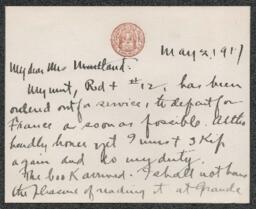 May 2, 1917
My dear Mrs Moreland:
My unit, Red + #12, has been
ordered out for service, to depart for
France as soon as possible. Altho
hardly home yet I must skip
again and do my duty.
The book arrived. I shall not have
the pleasure of reading it at Grande